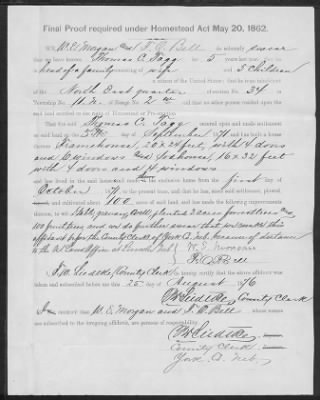 Final Proof required under Homestead Act May 20, 1862.
WE, W. E. Morgan and F. O. Bell do solemnly swear
that we have known Thomas C. Tagg for 5 years last past; that he is
head of a family consisting of wife and 5 children
a citizen of the United States; that he is an inhabitant
of the North East quarter of section No. 34 in
Township No. 11 N. of Range No. 2 W and that no other person resided upon the
said land entitled to the right of Homestead or Pre-emption.
That the said Thomas C. Tagg entered upon and made settlement
on said land on the day of September, 1871 and has built a house
thereon Framehouse, 20 x 24 feet, with 4 doors
and 6 windows and Sodhouse, 16 x 32 feet
with 4 doors and 4 windows
and has lived in the said house and made it his exclusive home from the first day of
October, 1871, to the present time, and that he has, since said settlement, plowed,
and cultivated about 100 acres of said land, and has made the following improvements
thereon, to wit: Stable, granary, well, planted 3 acres forest trees and
100 fruit trees and we do further swear that we make this
affidavit before the County Clerk of York Co. Neb. because of distance
to the U.S. Land Office at Lincoln Neb.
W. E. Morgan
F. O. Bell
I, County Clerk do hereby certify that the above affidavit was
taken and subscribed before me this 25 day of August 1876
County Clerk
I certify that W. E. Morgan and F. O. Bell whose names
are subscribed to the foregoing affidavit, are persons of respectability.
County Clerk
York Co. Neb.